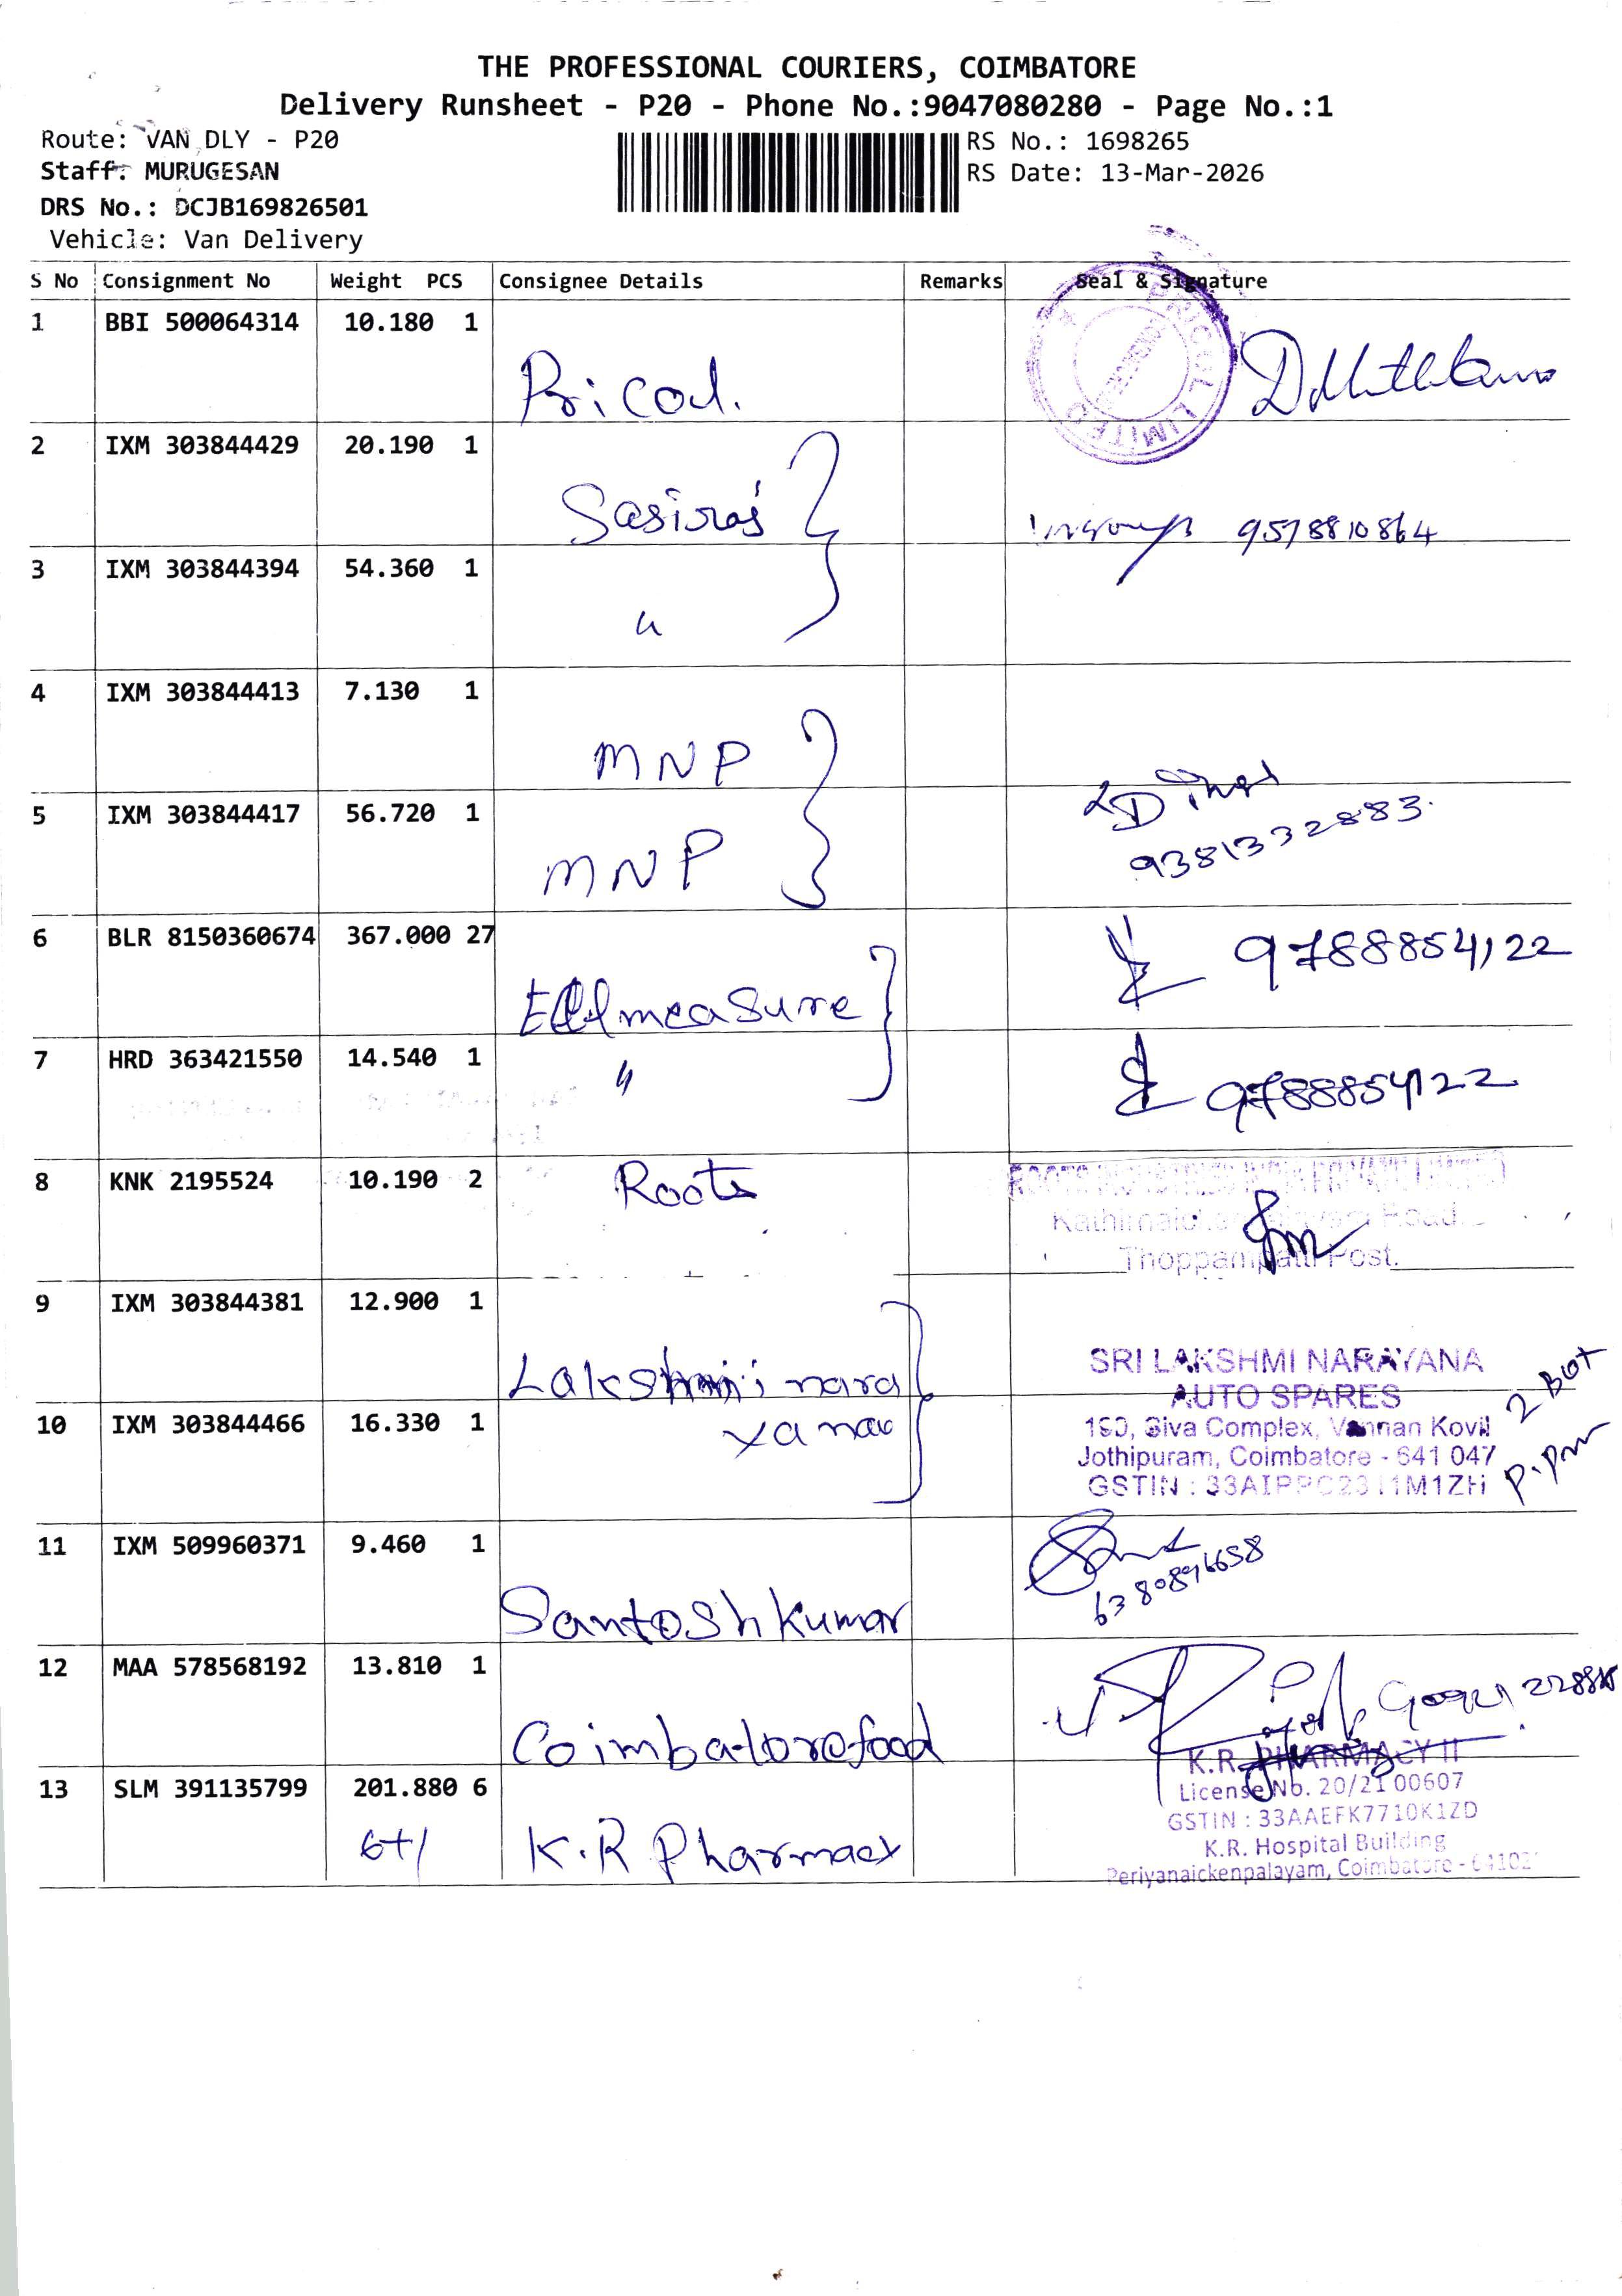 THE PROFESSIONAL COURIERS, COIMBATORE
Delivery Runsheet - P20 - Phone No.:9047080280 - Page No.:1
Route: VAN DLY - P20
Staff: MURUGESAN
DRS No.: DCJB169826501
Vehicle: Van Delivery
RS No.: 1698265
RS Date: 13-Mar-2026
S No Consignment No Weight PCS Consignee Details Remarks Seal & Signature
1 BBI 500064314 10.180 1
PRICOL LIMITED
2 IXM 303844429 20.190 1
Sasiraj 9578810864
3 IXM 303844394 54.360 1
"
4 IXM 303844413 7.130 1
MNP
5 IXM 303844417 56.720 1
MNP 9381332883.
6 BLR 8150360674 367.000 27
measure 9788854122
7 HRD 363421550 14.540 1
" 9788854122
8 KNK 2195524 10.190 2 Roots
Thoppampatti Post.
9 IXM 303844381 12.900 1
Lakshmi nara
yana
SRI LAKSHMI NARAYANA
AUTO SPARES
Siva Complex, Vannan Kovil
Jothipuram, Coimbatore - 641 047
GSTIN :
2 Box
10 IXM 303844466 16.330 1
11 IXM 509960371 9.460 1
Santosh kumar
12 MAA 578568192 13.810 1
Coimbatore food
13 SLM 391135799 201.880 6
6+1 K.R Pharmacy
K.R. PHARMACY II
License No. 20/21 00607
GSTIN : 33AAEFK7710K1ZD
K.R. Hospital Building
Periyanaickenpalayam, Coimbatore -